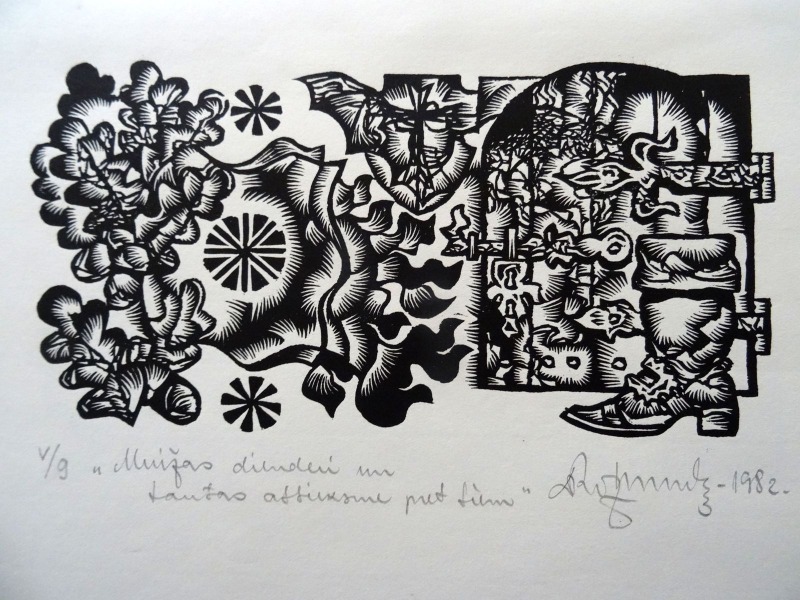 V/9 „Muižas dienderi un
tautas attieksme pret tiem"
- 1982.